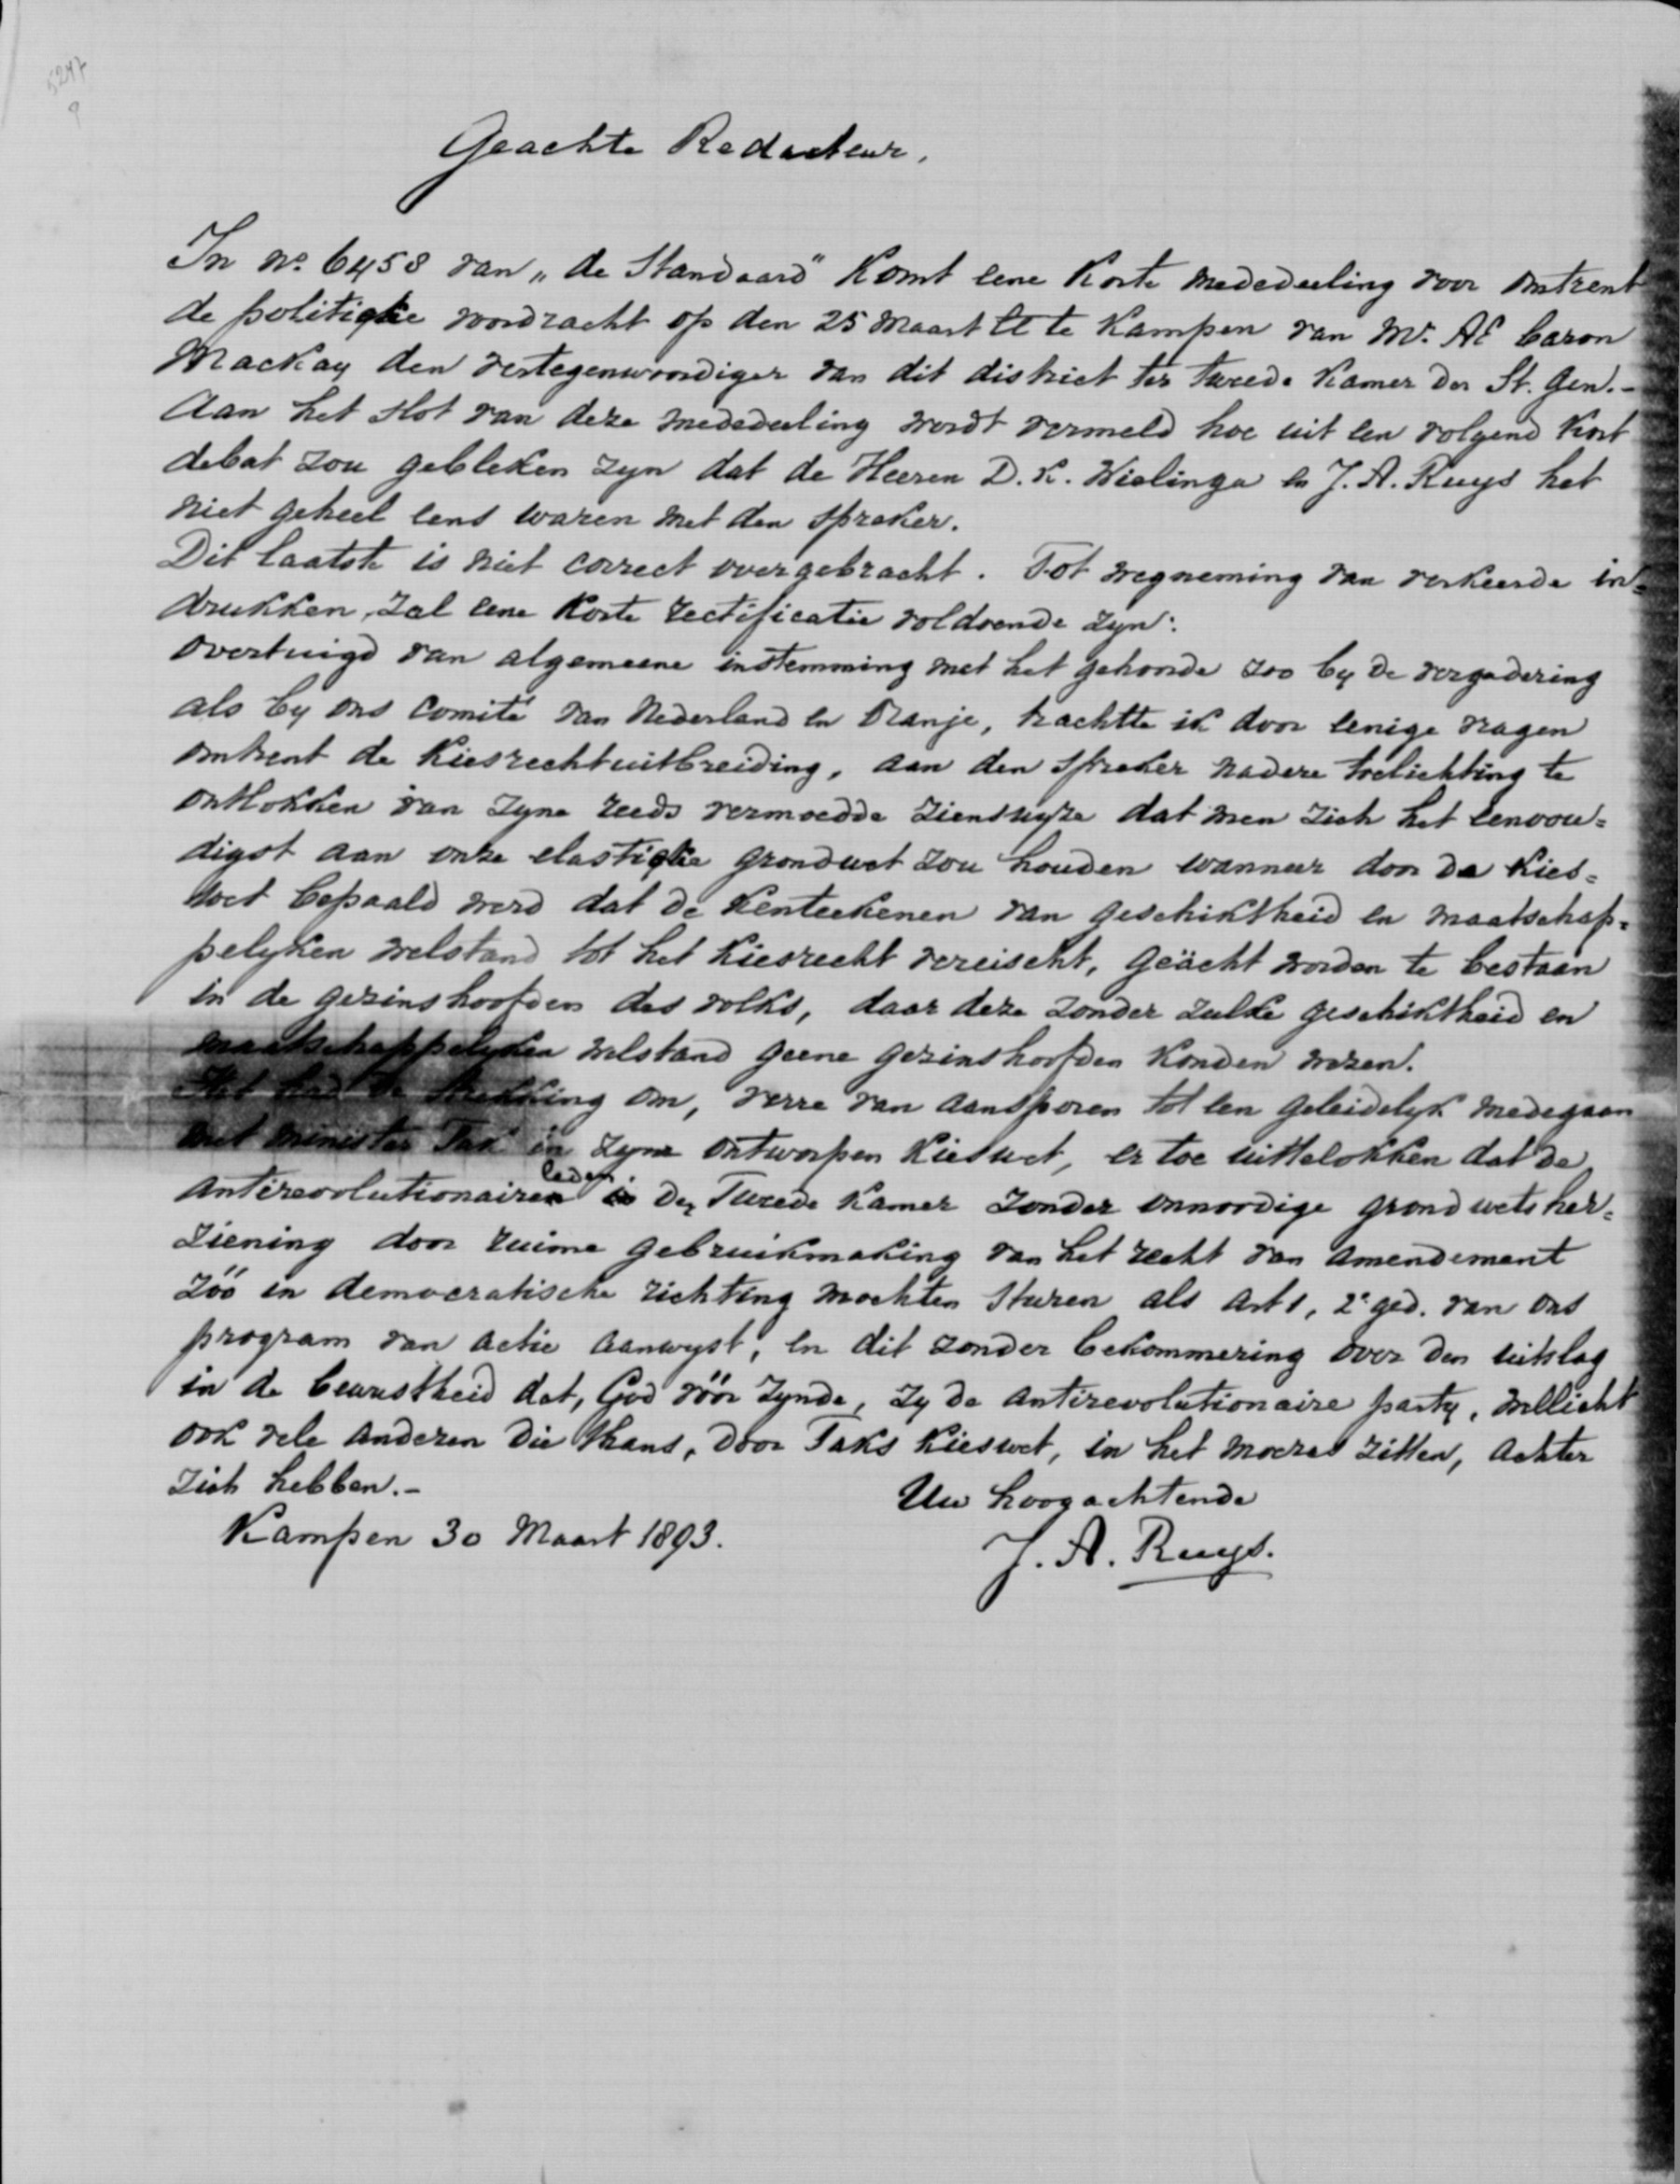 5247
9
Geachte Redacteur,
In No. 6458 van „de Standaard" komt eene korte mededeeling voor omtrent
de politieke voordracht op den 25 Maart ll te Kampen van Mr. AE baron
Mackay den vertegenwoordiger van dit district ter tweede Kamer der St. Gen.-
Aan het slot van deze mededeeling wordt vermeld hoe uit een volgend kort
debat zou gebleken zyn dat de Heeren D. K. Wielinga en J. A. Ruys het
niet geheel eens waren met den spreker.
Dit laatste is niet correct overgebracht. Tot wegneming van verkeerde in=
drukken, zal eene korte rectificatie voldoende zyn:
Overtuigd van algemeene instemming met het gehoorde zoo by de vergadering
als by ons comité van Nederland en Oranje, trachtte ik door eenige vragen
omtrent de kiesrechtuitbreiding, aan den spreker nadere toelichting te
ontlokken van zyne reeds vermoedde zienswyze dat men zich het eenvou=
digst aan onze elastieke grondwet zou houden wanneer door de kies=
wet bepaald werd dat de kenteekenen van geschiktheid en maatschap=
pelyken welstand tot het kiesrecht vereischt, geächt worden te bestaan
in de gezinshoofden des volks, daar deze zonder zulke geschiktheid en
maatschappelyken welstand geene gezinshoofden konden wezen.
Het had de strekking om, verre van aansporen tot een geleidelyk medegaan
met minister Tak in zyne ontworpen kieswet, er toe uittelokken dat de
antirevolutionaire leden der Tweede Kamer zonder onnoodige grondwetsher=
ziening door ruime gebruikmaking van het recht van amendement
zóó in democratische richting mochten sturen als art 1, 2e ged. van ons
program van actie aanwyst, en dit zonder bekommering over den uitslag
in de bewustheid dat, God vóór zynde, zy de antirevolutionaire party, wellicht
ook vele anderen die thans, door Taks kieswet, in het moeras zitten, achter
zich hebben.-
Uw hoogachtende
Kampen 30 Maart 1893.
J. A. Ruys.